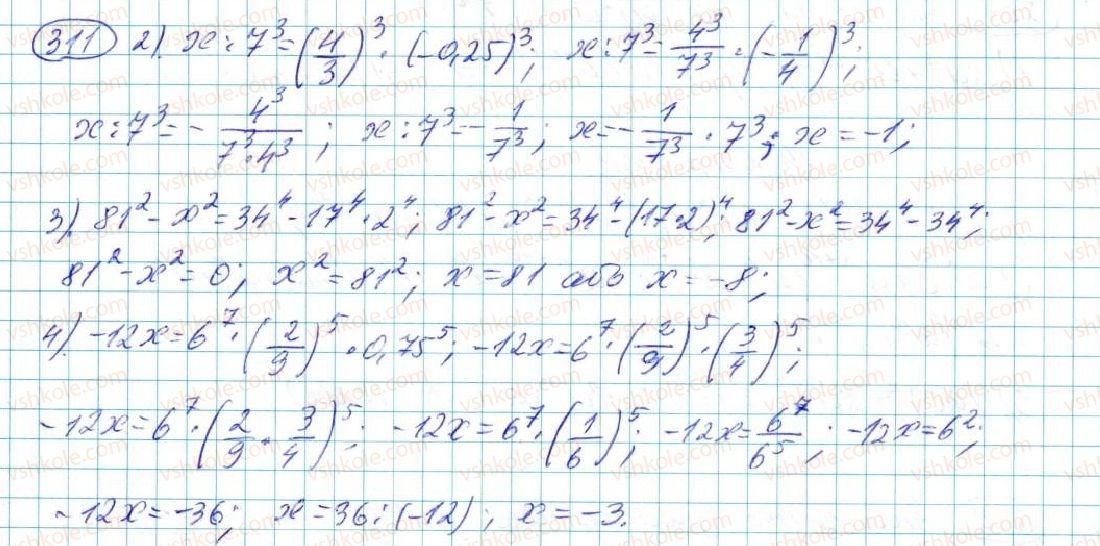 311 2) x : 7³ = (4/3)³ · (-0,25)³; x : 7³ = 4³/7³ · (-1/4)³;
x : 7³ = - 4³/(7³·4³); x : 7³ = - 1/7³; x = - 1/7³ · 7³; x = -1;
3) 81² - x² = 34⁴ - 17⁴ · 2⁴; 81² - x² = 34⁴ - (17·2)⁴; 81² - x² = 34⁴ - 34⁴;
81² - x² = 0; x² = 81²; x = 81 або x = -8;
4) -12x = 6⁷ · (2/9)⁵ · 0,75⁵; -12x = 6⁷ · (2/9)⁵ · (3/4)⁵;
-12x = 6⁷ · (2/9 · 3/4)⁵; -12x = 6⁷ · (1/6)⁵; -12x = 6⁷/6⁵; -12x = 6²;
-12x = -36; x = 36 : (-12); x = -3.